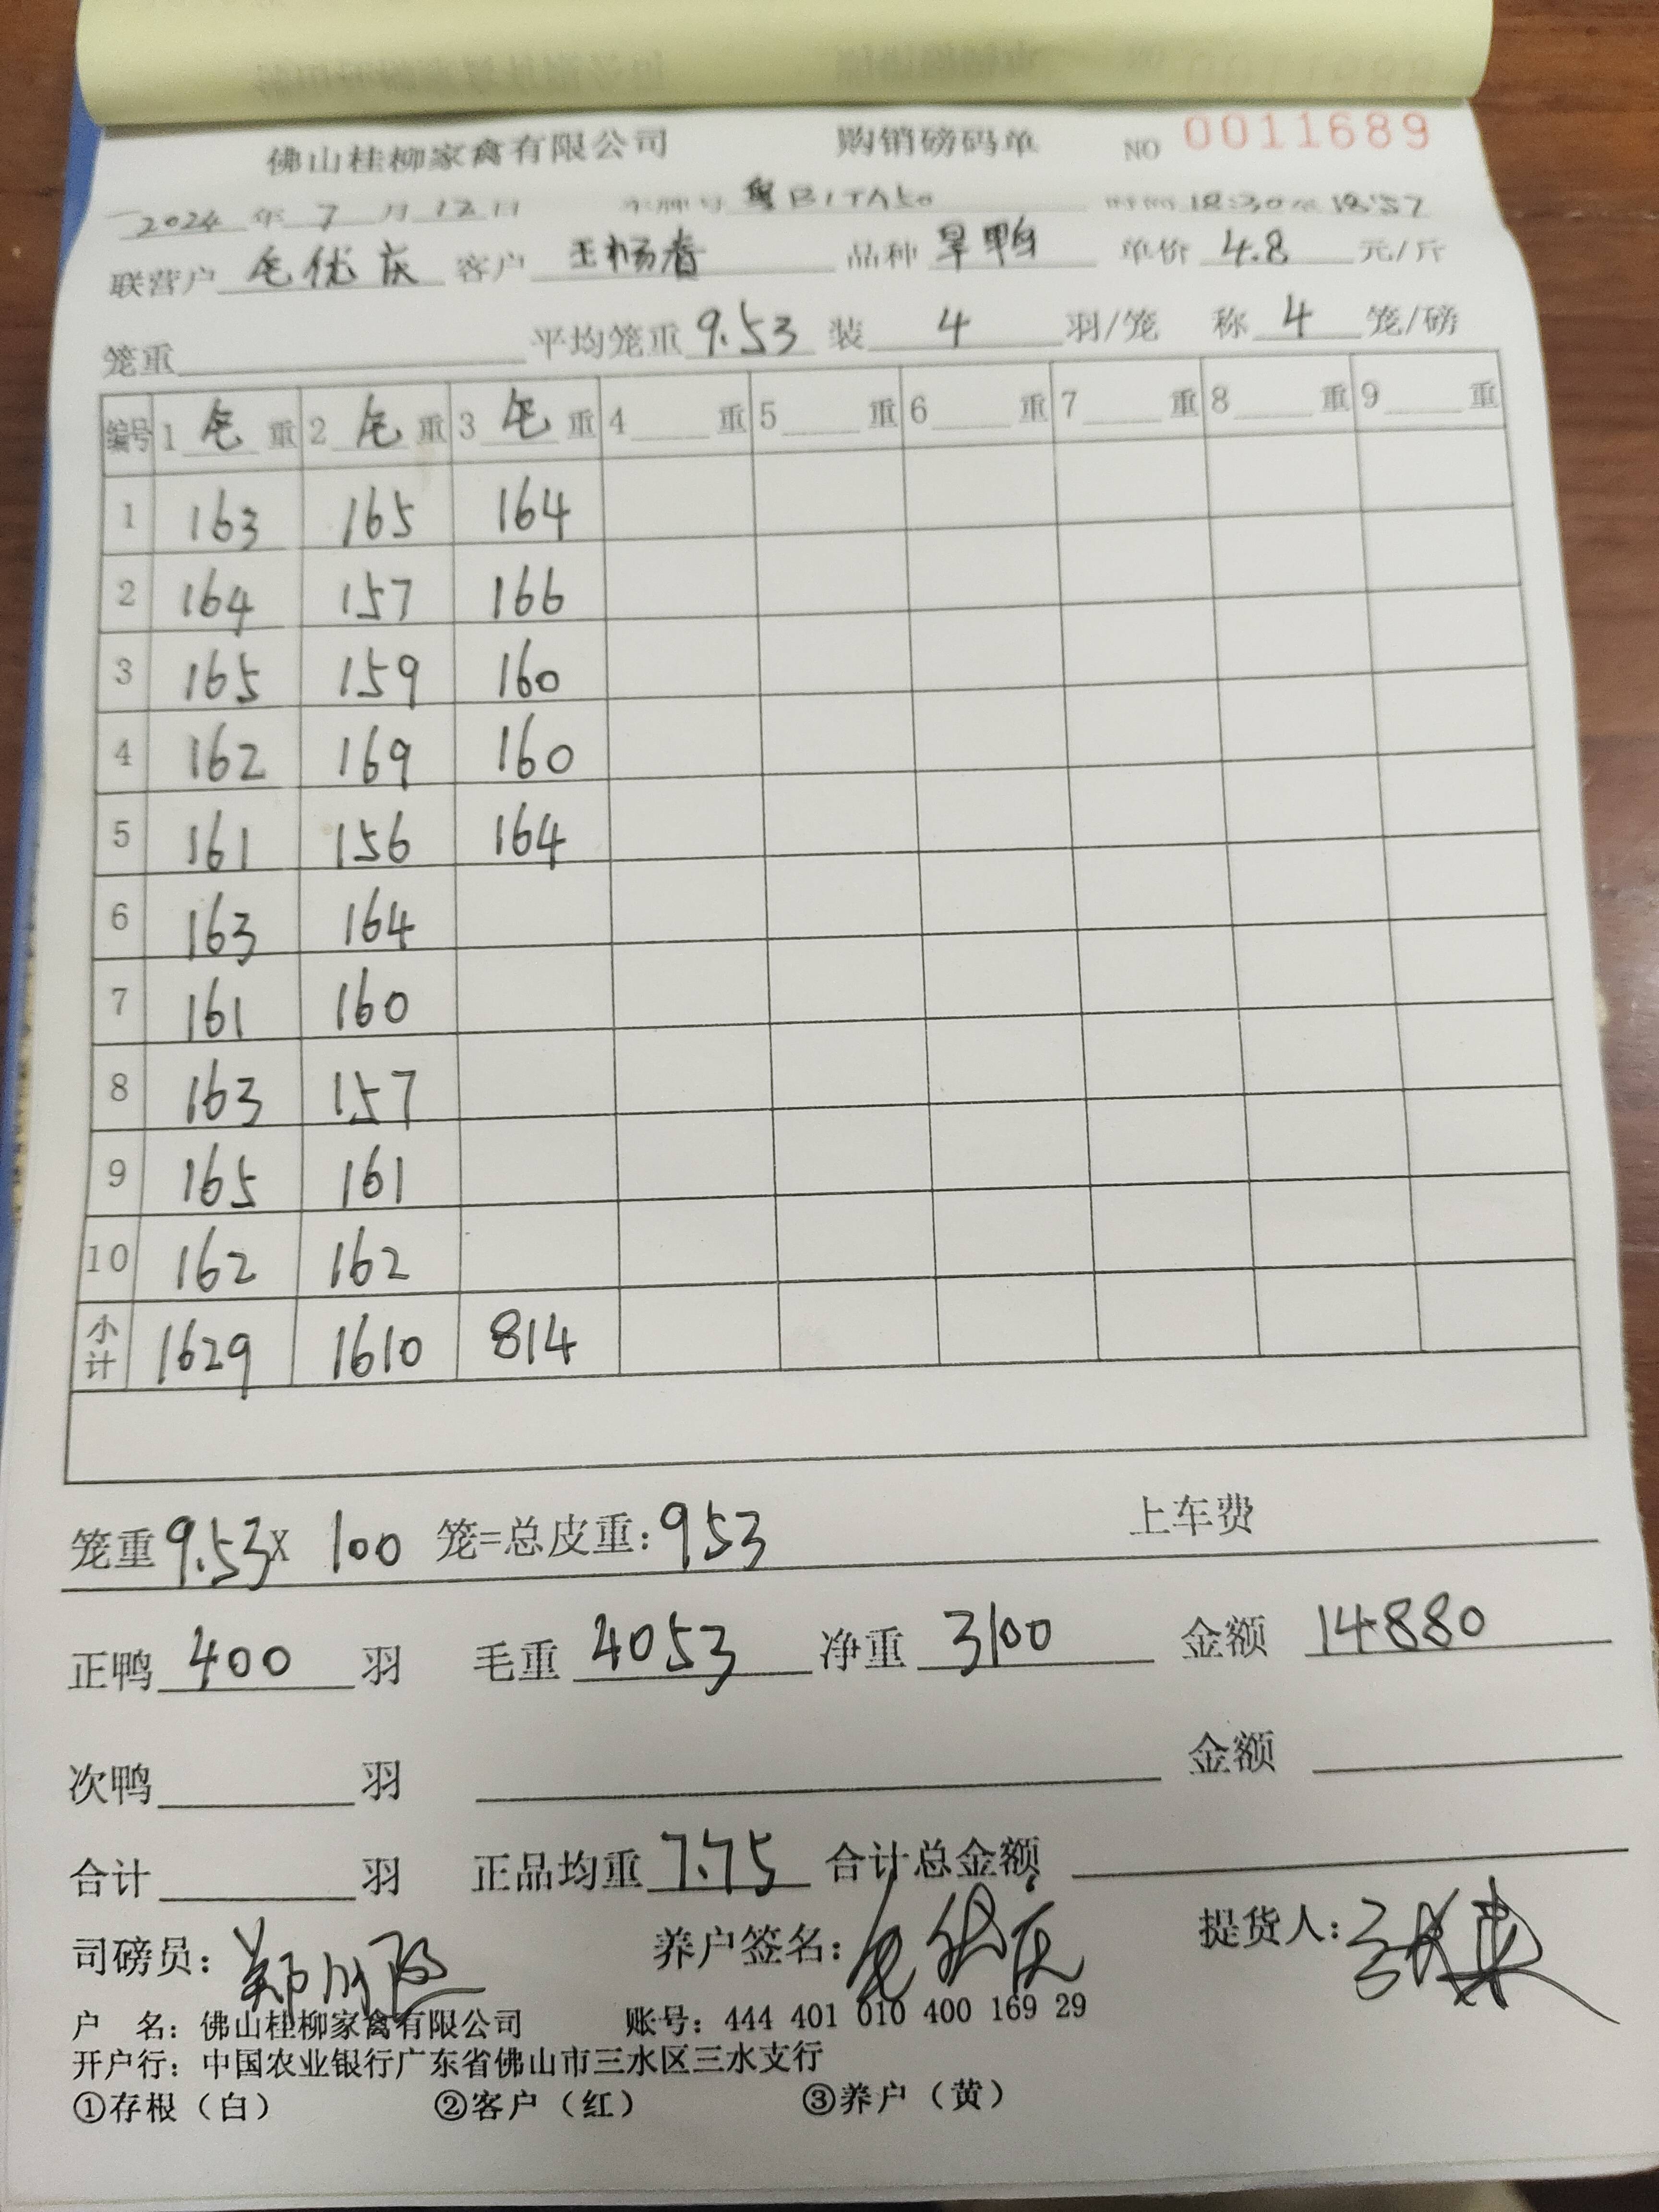 佛山桂柳家禽有限公司 购销磅码单 NO 0011689
2024年7月12日 车牌号 粤B1TA50 时间 18:30 18:57
联营户 毛优庆 客户 王杨春 品种 旱鸭 单价 4.8 元/斤
笼重 平均笼重 9.53 装 4 羽/笼 称 4 笼/磅
编号 1 毛 重 2 毛 重 3 毛 重 4 重 5 重 6 重 7 重 8 重 9 重
1 163 165 164
2 164 157 166
3 165 159 160
4 162 169 160
5 161 156 164
6 163 164
7 161 160
8 163 157
9 165 161
10 162 162
小计 1629 1610 814
笼重 9.53 X 100 笼=总皮重: 953 上车费
正鸭 400 羽 毛重 4053 净重 3100 金额 14880
次鸭 羽 金额
合计 羽 正品均重 7.75 合计总金额
司磅员: 养户签名: 毛优庆 提货人:
户 名: 佛山桂柳家禽有限公司 账号: 444 401 010 400 169 29
开户行: 中国农业银行广东省佛山市三水区三水支行
①存根（白） ②客户（红） ③养户（黄）